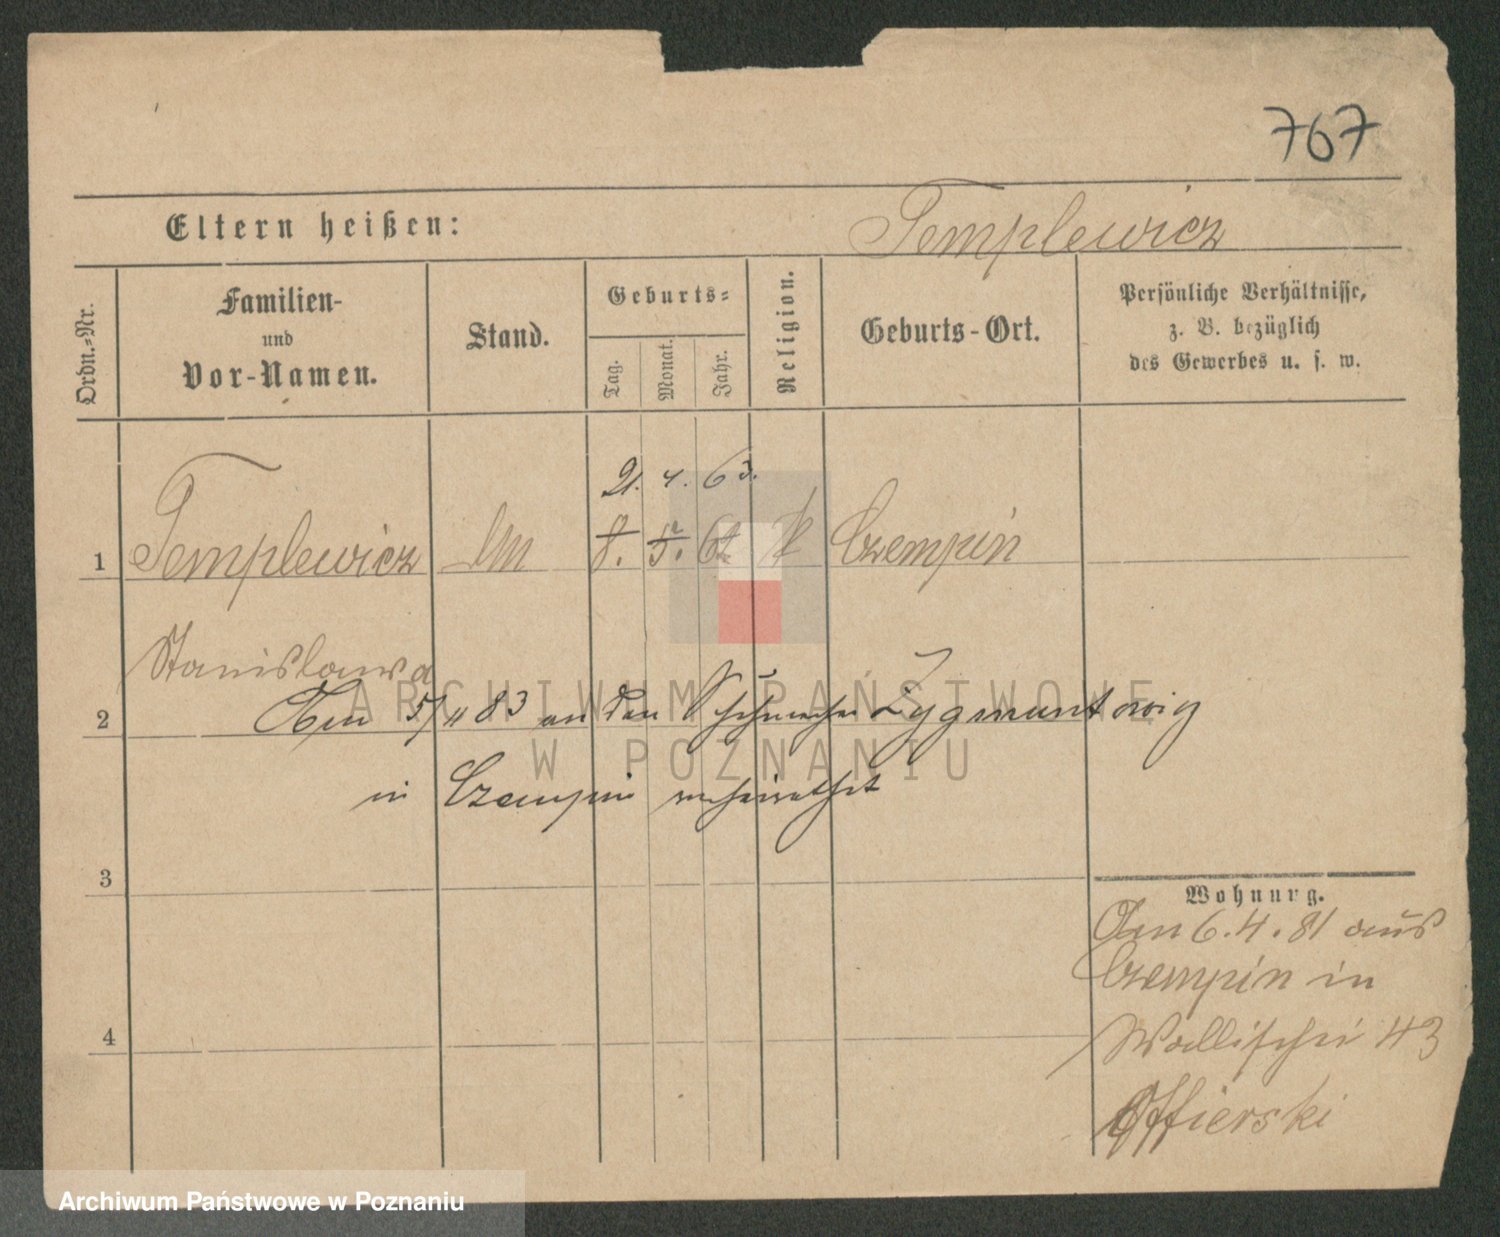 767
Eltern heißen:
Templewicz
Ordn.-Nr.
Familien-
und
Vor-Namen.
Stand.
Geburts-
Tag.
Monat.
Jahr.
Religion.
Geburts-Ort.
Persönliche Verhältnisse,
z. B. bezüglich
des Gewerbes u. s. w.
21. 4. 63.
1 Templewicz 8. 5. 62 k Czempin
Stanislawa
2 Am 5/11 83 an den Schuhmacher Zygmuntowig
in Czempin verheirathet
3
Wohnung.
Am 6.4.81 aus
Czempin in
Wallischei 43
4
Offierski
ARCHIWUM PAŃSTWOWE
W POZNANIU
Archiwum Państwowe w Poznaniu